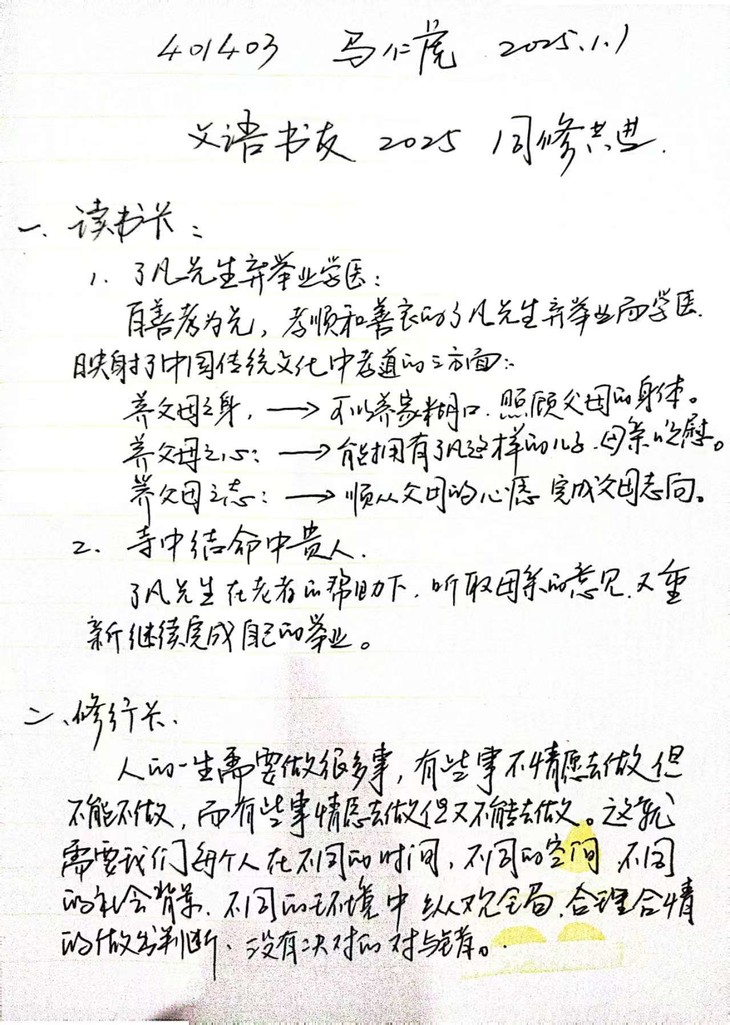 401403 马仁虎 2025.1.1
义语书友 2025 同修共进.
一、读书长：
1. 了凡先生弃举业学医：
百善孝为先，孝顺和善良的了凡先生弃举业而学医.
映射了中国传统文化中孝道的三方面：
养父母之身，→ 可以养家糊口.照顾父母的身体。
养父母之心：→ 能拥有了凡这样的儿子.母亲欣慰。
养父母之志：→ 顺从父母的心愿 完成父母志向。
2. 寺中结命中贵人.
了凡先生在老者的帮助下.听取母亲的意见.又重
新继续完成自己的举业。
二、修行长.
人的一生需要做很多事，有些事不情愿去做但
不能不做，而有些事情愿去做但又不能去做。这就
需要我们每个人在不同的时间，不同的空间 不同
的社会背景.不同的环境中纵观全局.合理合情
的做出判断.没有决对的对与错。